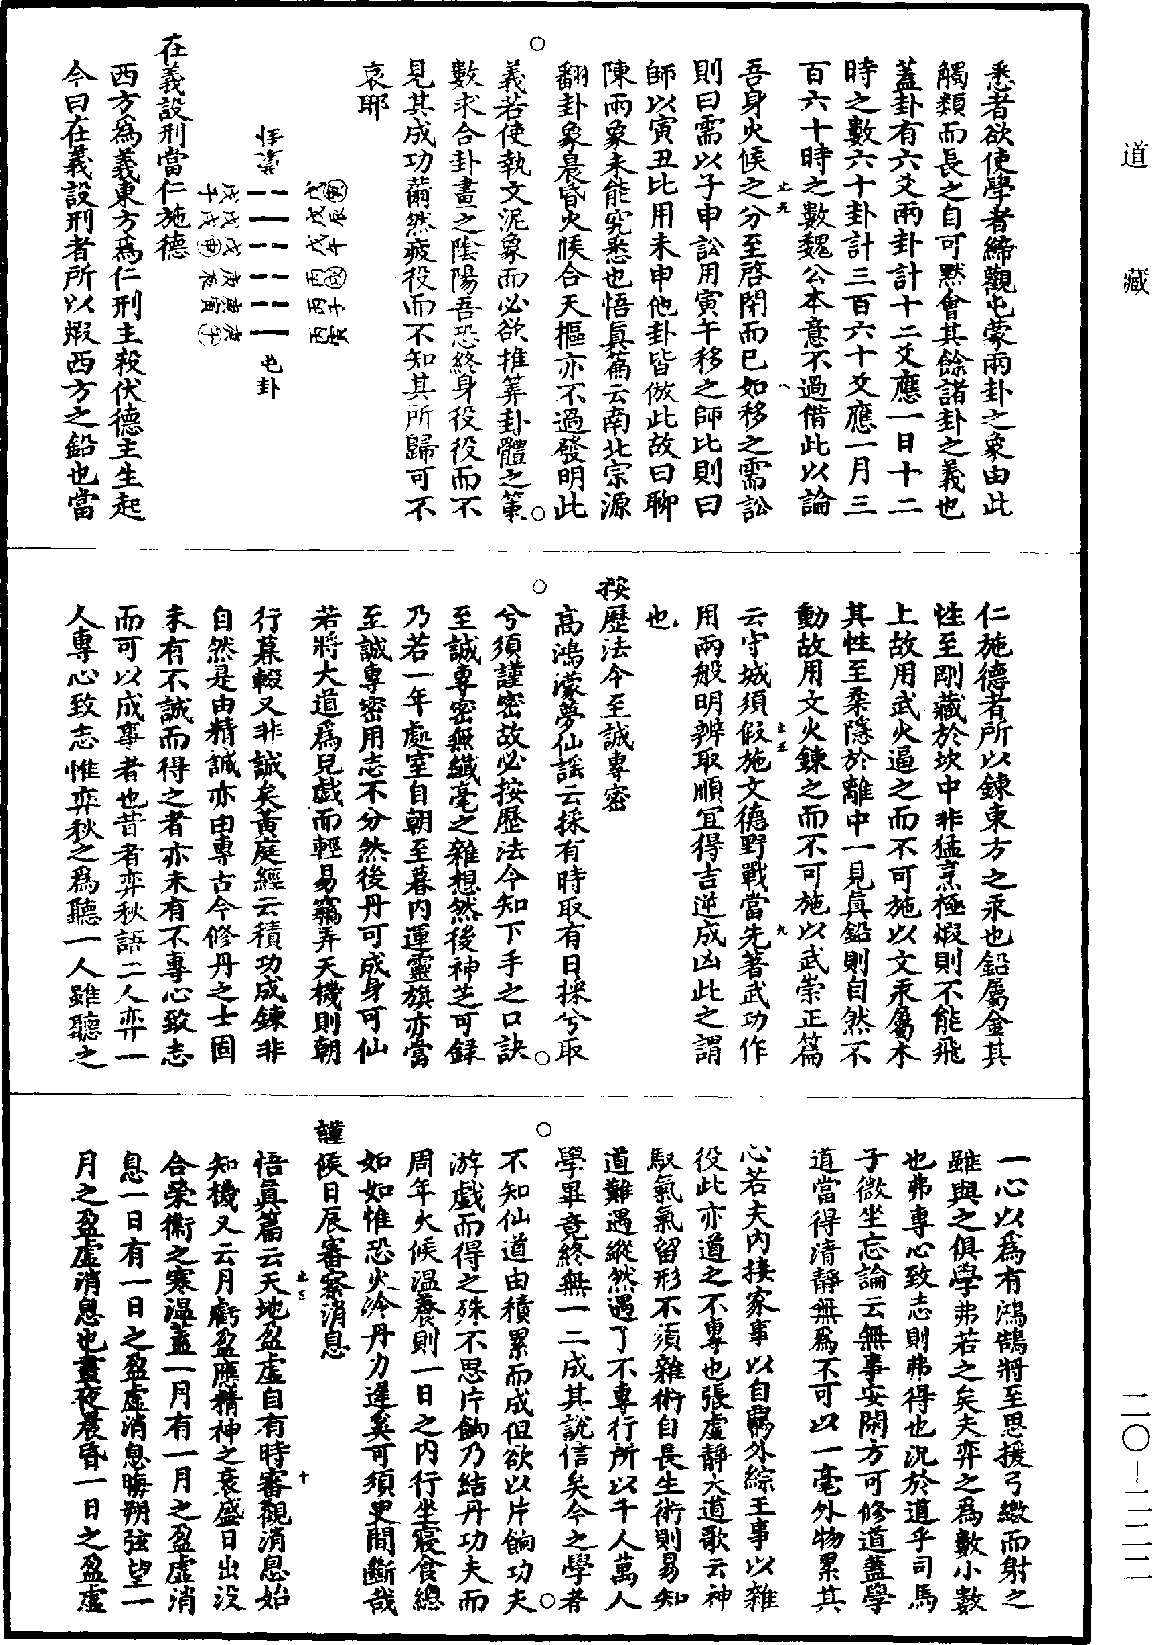 道藏
悉者欲使學者締觀屯蒙兩卦之象由此
觸類而長之自可默會其餘諸卦之義也
蓋卦有六爻兩卦計十二爻應一日十二
時之數六十卦計三百六十爻應一月三
百六十時之數魏公本意不過借此以論
吾身火候之分至啓閉而已如移之需訟
則曰需以子申訟用寅午移之師比則曰
師以寅丑比用未申他卦皆倣此故曰聊
陳兩象未能究悉也悟真篇云南北宗源
翻卦象晨昏火候合天樞亦不過發明此
義若使執文泥象而必欲推筭卦體之策
數求合卦畫之陰陽吾恐終身役役而不
見其成功薾然疲役而不知其所歸可不
哀耶
屯卦
在義設刑當仁施德
西方為義東方為仁刑主殺伏德主生起
今曰在義設刑者所以煆西方之鉛也當
仁施德者所以鍊東方之汞也鉛屬金其
性至剛藏於坎中非猛烹極煆則不能飛
上故用武火逼之而不可施以文汞屬木
其性至柔隱於離中一見真鉛則自然不
動故用文火鍊之而不可施以武崇正篇
云守城須假施文德野戰當先著武功作
用兩般明辨取順宜得吉逆成凶此之謂
也
按歷法令至誠專密
高鴻濛夢仙謡云採有時取有日採兮取
兮須謹密故必按歷法令知下手之口訣
至誠專密無纖毫之雜想然後神芝可録
乃若一年處室自朝至暮內運靈旗亦當
至誠專密用志不分然後丹可成身可仙
若將大道為兒戲而輕易竊弄天機則朝
行暮輟又非誠矣黃庭經云積功成鍊非
自然是由精誠亦由專古今修丹之士固
未有不誠而得之者亦未有不專心致志
而可以成事者也昔者弈秋語二人弈一
人專心致志惟弈秋之為聽一人雖聽之
一心以為有鴻鵠將至思援弓繳而射之
雖與之俱學弗若之矣夫弈之為數小數
也弗專心致志則弗得也況於道乎司馬
子微坐忘論云無事安閑方可修道蓋學
道當得清靜無為不可以一毫外物累其
心若夫內接家事以自羈外綜王事以雜
役此亦道之不專也張虛靜大道歌云神
馭氣氣留形不須雜術自長生術則易知
道難遇縱然遇了不專行所以千人萬人
學畢竟終無一二成其說信矣今之學者
不知仙道由積累而成但欲以片餉功夫
游戲而得之殊不思片餉乃結丹功夫而
周年火候溫養則一日之內行坐寢食總
如如惟恐火冷丹力遲矣可須臾間斷哉
謹候日辰審察消息
悟真篇云天地盈虛自有時審觀消息始
知機又云月虧盈應精神之衰盛日出沒
合榮衛之寒溫蓋一月有一月之盈虛消
息一日有一日之盈虛消息晦朔弦望一
月之盈虛消息也晝夜晨昏一日之盈虛
二〇-二二二